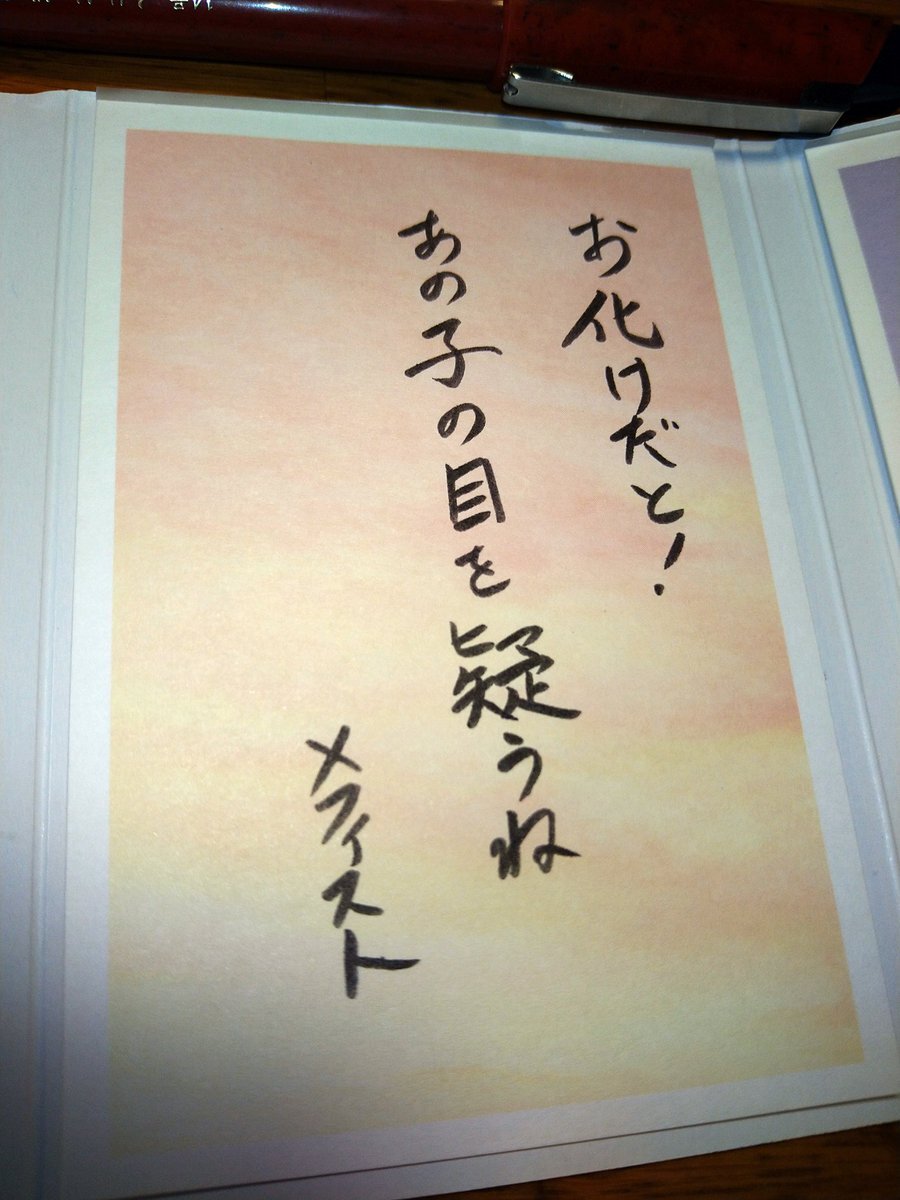 お化けだと!
あの子の目を疑うね
メフィスト